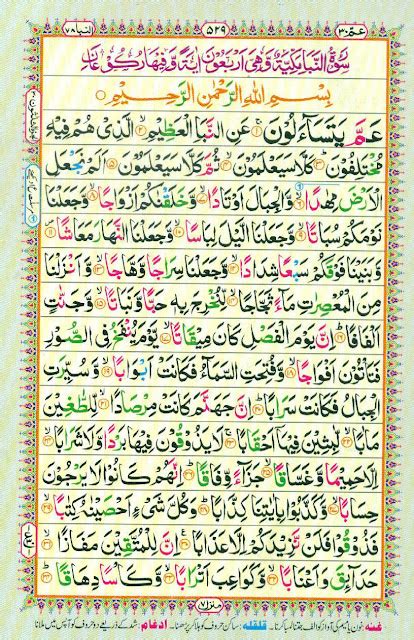 عم ۳۰
۵۲۹
النبا ۷۸
سُوْرَةُ النَّبَاِ مَكِّيَّةٌ وَّهِيَ اَرْبَعُوْنَ اٰيَةً وَّفِيْهَا رُكُوْعَانِ
بِسْمِ اللّٰهِ الرَّحْمٰنِ الرَّحِيْمِ
عَمَّ يَتَسَآءَلُوْنَ ۱ عَنِ النَّبَاِ الْعَظِيْمِ ۲ الَّذِيْ هُمْ فِيْهِ
مُخْتَلِفُوْنَ ۳ كَلَّا سَيَعْلَمُوْنَ ۴ ثُمَّ كَلَّا سَيَعْلَمُوْنَ ۵ اَلَمْ نَجْعَلِ
الْاَرْضَ مِهٰدًا ۶ وَّالْجِبَالَ اَوْتَادًا ۷ وَّخَلَقْنٰكُمْ اَزْوَاجًا ۸ وَّجَعَلْنَا
نَوْمَكُمْ سُبَاتًا ۹ وَّجَعَلْنَا الَّيْلَ لِبَاسًا ۱۰ وَّجَعَلْنَا النَّهَارَ مَعَاشًا ۱۱
وَّبَنَيْنَا فَوْقَكُمْ سَبْعًا شِدَادًا ۱۲ وَّجَعَلْنَا سِرَاجًا وَّهَّاجًا ۱۳ وَّاَنْزَلْنَا
مِنَ الْمُعْصِرٰتِ مَآءً ثَجَّاجًا ۱۴ لِّنُخْرِجَ بِهٖ حَبًّا وَّنَبَاتًا ۱۵ وَّجَنّٰتٍ
اَلْفَافًا ۱۶ اِنَّ يَوْمَ الْفَصْلِ كَانَ مِيْقَاتًا ۱۷ يَّوْمَ يُنْفَخُ فِي الصُّوْرِ
فَتَاْتُوْنَ اَفْوَاجًا ۱۸ وَّفُتِحَتِ السَّمَآءُ فَكَانَتْ اَبْوَابًا ۱۹ وَّسُيِّرَتِ
الْجِبَالُ فَكَانَتْ سَرَابًا ۲۰ اِنَّ جَهَنَّمَ كَانَتْ مِرْصَادًا ۲۱ لِّلطّٰغِيْنَ
مَاٰبًا ۲۲ لّٰبِثِيْنَ فِيْهَآ اَحْقَابًا ۲۳ لَا يَذُوْقُوْنَ فِيْهَا بَرْدًا وَّلَا شَرَابًا ۲۴
اِلَّا حَمِيْمًا وَّغَسَّاقًا ۲۵ جَزَآءً وِّفَاقًا ۲۶ اِنَّهُمْ كَانُوْا لَا يَرْجُوْنَ
حِسَابًا ۲۷ وَّكَذَّبُوْا بِاٰيٰتِنَا كِذَّابًا ۲۸ وَكُلَّ شَيْءٍ اَحْصَيْنٰهُ كِتٰبًا ۲۹
فَذُوْقُوْا فَلَنْ نَّزِيْدَكُمْ اِلَّا عَذَابًا ۳۰ اِنَّ لِلْمُتَّقِيْنَ مَفَازًا ۳۱
حَدَآئِقَ وَاَعْنَابًا ۳۲ وَّكَوَاعِبَ اَتْرَابًا ۳۳ وَّكَاْسًا دِهَاقًا ۳۴
منزل ۷